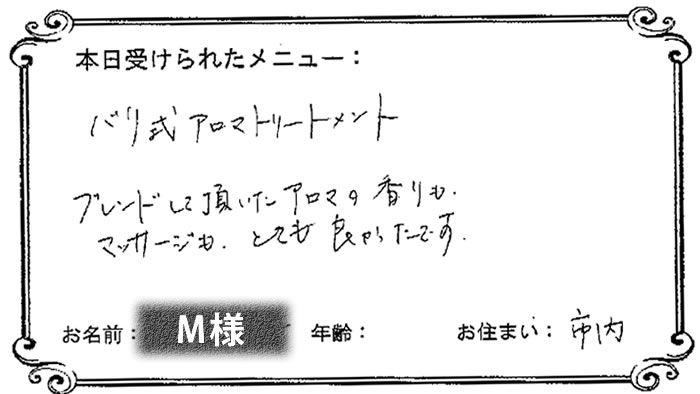 本日受けられたメニュー：
バリ式アロマトリートメント
ブレンドして頂いたアロマの香りも、
マッサージも、とても良かったです。
お名前： M様 年齢： お住まい： 市内